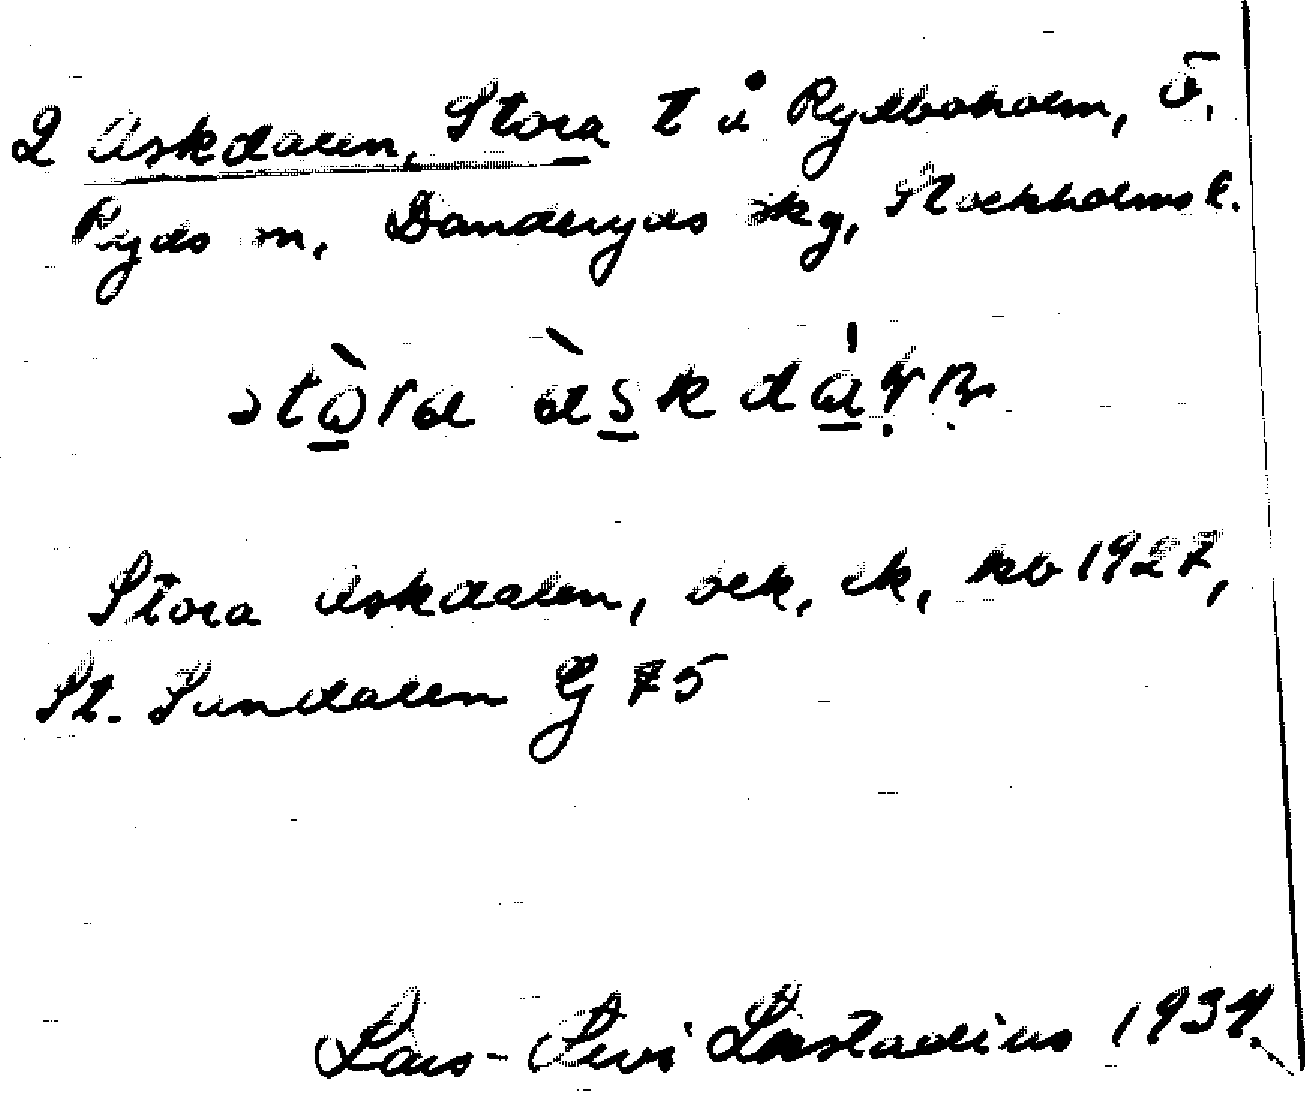 2 Askdalen, Stora t å Rydboholm, Ö.
Ryds sn, Danderyds skg, Stockholms l.
stòra àskdál̥n
Stora Askdalen, oek, ek, kb 1927,
St. Sundalen G 75
Lars-Levi Læstadius 1934.